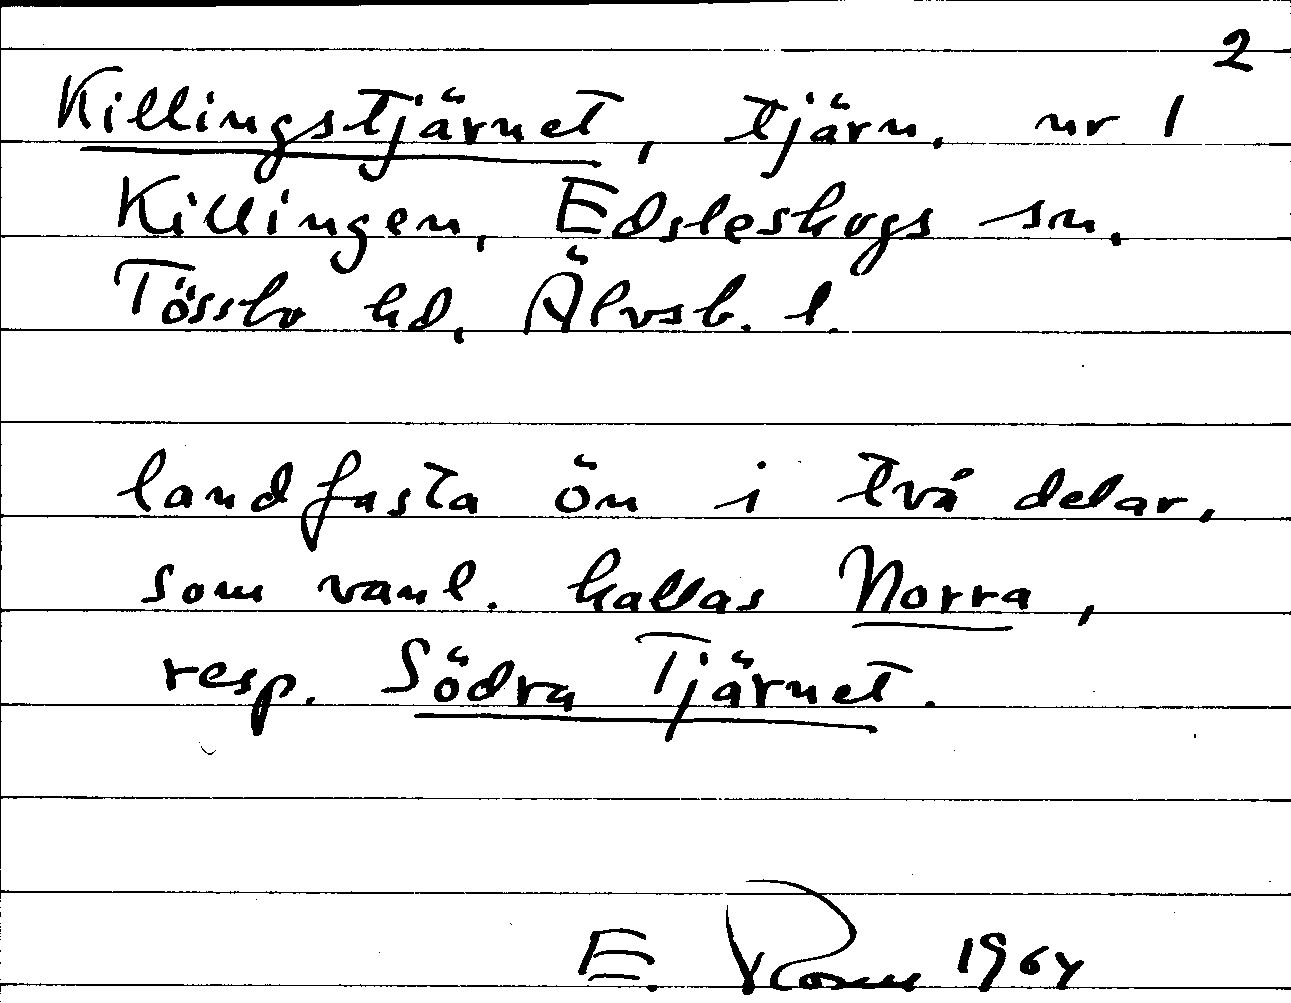 2
Killingstjärnet, tjärn, nr 1
Killingen, Edsleskogs sn,
Tössbo hd, Älvsb. l.
landfasta ön i två delar,
som vanl. kallas Norra,
resp. Södra Tjärnet.
E. Rosen 1964